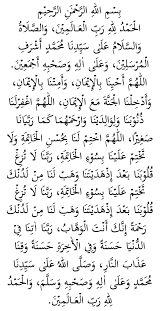 بِسْمِ اللّٰهِ الرَّحْمٰنِ الرَّحِيْمِ
الْحَمْدُ لِلّٰهِ رَبِّ الْعَالَمِيْنَ، وَالصَّلَاةُ
وَالسَّلَامُ عَلَى سَيِّدِنَا مُحَمَّدٍ أَشْرَفِ
الْمُرْسَلِيْنَ، وَعَلَى اٰلِهِ وَصَحْبِهِ أَجْمَعِيْنَ.
اَللّٰهُمَّ أَحْيِنَا بِالْإِيْمَانِ، وَأَمِتْنَا بِالْإِيْمَانِ،
وَأَدْخِلْنَا الْجَنَّةَ مَعَ الْإِيْمَانِ، اَللّٰهُمَّ اغْفِرْلَنَا
ذُنُوْبَنَا وَلِوَالِدَيْنَا وَارْحَمْهُمَا كَمَا رَبَّيَانَا
صَغِيْرًا، اَللّٰهُمَّ اخْتِمْ لَنَا بِحُسْنِ الْخَاتِمَةِ وَلَا
تَخْتِمْ عَلَيْنَا بِسُوْءِ الْخَاتِمَةِ، رَبَّنَا لَا تُزِغْ
قُلُوْبَنَا بَعْدَ إِذْهَدَيْتَنَا وَهَبْ لَنَا مِنْ لَدُنْكَ
تَخْتِمْ عَلَيْنَا بِسُوْءِ الْخَاتِمَةِ، رَبَّنَا لَا تُزِغْ
قُلُوْبَنَا بَعْدَ إِذْهَدَيْتَنَا وَهَبْ لَنَا مِنْ لَدُنْكَ
رَحْمَةً إِنَّكَ أَنْتَ الْوَهَّابُ، رَبَّنَا اٰتِنَا فِي
الدُّنْيَا حَسَنَةً وَفِي الْاٰخِرَةِ حَسَنَةً وَقِنَا
عَذَابَ النَّارِ، وَصَلَّى اللّٰهُ عَلَى سَيِّدِنَا
مُحَمَّدٍ وَعَلَى اٰلِهِ وَصَحْبِهِ وَسَلَّمَ، وَالْحَمْدُ
لِلّٰهِ رَبِّ الْعَالَمِيْنَ.